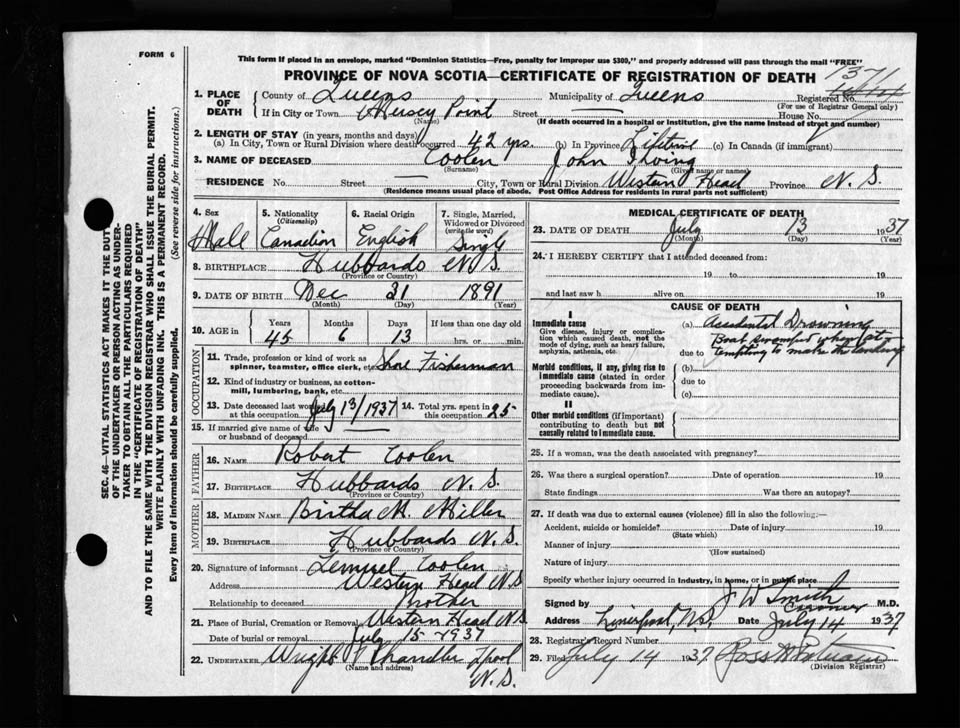 FORM 6
This form if placed in an envelope, marked "Dominion Statistics—Free, penalty for improper use $300," and properly addressed will pass through the mail "FREE"
PROVINCE OF NOVA SCOTIA—CERTIFICATE OF REGISTRATION OF DEATH
1371
1. PLACE OF DEATH
County of Queens Municipality of Queens Registered No.
(For use of Registrar General only)
If in City or Town Mersey Point Street House No.
(Name) (If death occurred in a hospital or institution, give the name instead of street and number)
2. LENGTH OF STAY (in years, months and days)
(a) In City, Town or Rural Division where death occurred 42 yrs. (b) In Province Lifetime (c) In Canada (if immigrant)
3. NAME OF DECEASED Coolen John Irving
(Surname) (Given name or names)
RESIDENCE No. — Street City, Town or Rural Division Western Head Province N. S.
(Residence means usual place of abode. Post Office Address for residents in rural parts not sufficient)
SEC. 46—VITAL STATISTICS ACT MAKES IT THE DUTY
OF THE UNDERTAKER OR PERSON ACTING AS UNDER-
TAKER TO OBTAIN ALL THE PARTICULARS REQUIRED
IN THE "CERTIFICATE OF REGISTRATION OF DEATH"
AND TO FILE THE SAME WITH THE DIVISION REGISTRAR WHO SHALL ISSUE THE BURIAL PERMIT.
WRITE PLAINLY WITH UNFADING INK. THIS IS A PERMANENT RECORD.
Every item of information should be carefully supplied. (See reverse side for instructions.)
4. Sex Male
5. Nationality (Citizenship) Canadian
6. Racial Origin English
7. Single, Married, Widowed or Divorced (write the word) Single
8. BIRTHPLACE Hubbards N. S.
(Province or Country)
9. DATE OF BIRTH Dec 31 1891
(Month) (Day) (Year)
10. AGE in Years Months Days If less than one day old
45 6 13 hrs. or min.
OCCUPATION
11. Trade, profession or kind of work as
spinner, teamster, office clerk, etc. Shore Fisherman
12. Kind of industry or business, as cotton-
mill, lumbering, bank, etc.
13. Date deceased last worked at this occupation July 13/1937 14. Total yrs. spent in this occupation 25
15. If married give name of wife
or husband of deceased —
FATHER
16. NAME Robert Coolen
17. BIRTHPLACE Hubbards N. S.
(Province or Country)
MOTHER
18. MAIDEN NAME Birtha M. Miller
19. BIRTHPLACE Hubbards N. S.
(Province or Country)
20. Signature of informant Lemuel Coolen
Address Western Head N S
Relationship to deceased
21. Place of Burial, Cremation or Removal Western Head N S
Date of burial or removal July 15-1937
22. UNDERTAKER Wright Chandler Lpool
(Name and address) N. S.
MEDICAL CERTIFICATE OF DEATH
23. DATE OF DEATH July 13 1937
(Month) (Day) (Year)
24. I HEREBY CERTIFY that I attended deceased from:
19 to 19
and last saw h alive on 19
CAUSE OF DEATH
I
Immediate cause
Give disease, injury or complica-
tion which caused death, not the
mode of dying, such as heart failure,
asphyxia, asthenia, etc.
(a) Accidental Drowning
Boat swamped when at
due to tempting to make the landing
Morbid conditions, if any, giving rise to
immediate cause (stated in order
proceeding backwards from im-
mediate cause).
(b)
due to
(c)
II
Other morbid conditions (if important)
contributing to death but not
causally related to immediate cause.
25. If a woman, was the death associated with pregnancy?
26. Was there a surgical operation? Date of operation 19
State findings Was there an autopsy?
27. If death was due to external causes (violence) fill in also the following:—
Accident, suicide or homicide? Date of injury 19
(State which)
Manner of injury
(How sustained)
Nature of injury
Specify whether injury occurred in industry, in home, or in public place
Signed by J W Smith M.D.
Coroner
Address Liverpool, N.S. Date July 14 1937
28. Registrar's Record Number
29. Filed July 14 1937 Ross
(Division Registrar)